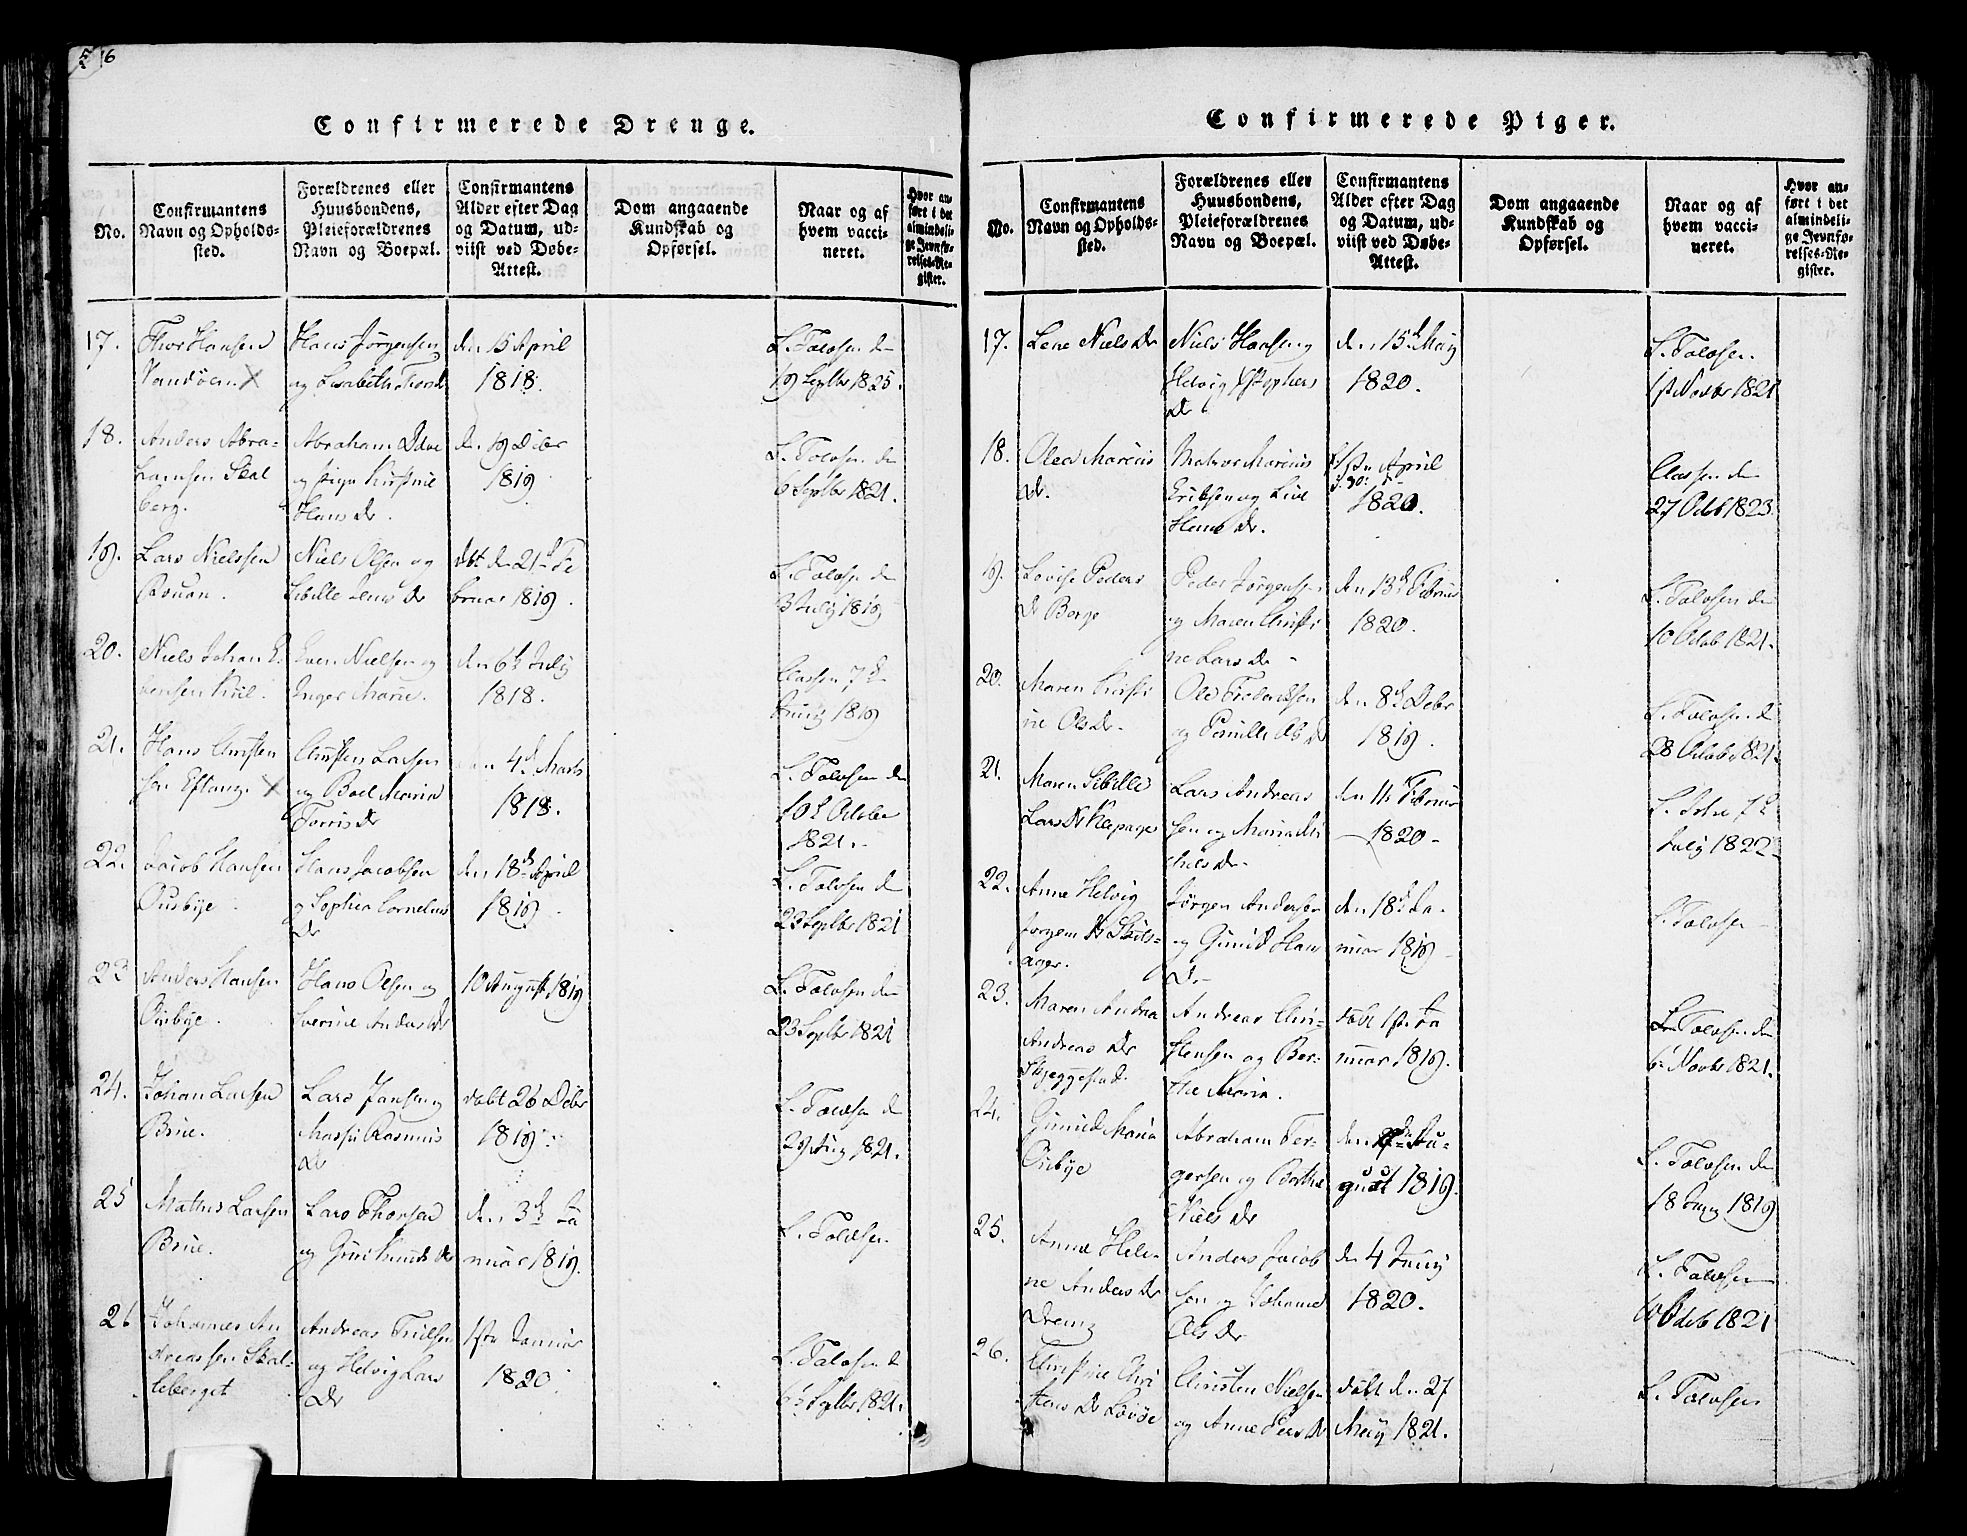 516
Confirmerede Drenge.
No.
Confirmantens
Navn og Opholds-
sted.
Forældrenes eller
Huusbondens,
Pleieforældrenes
Navn og Boepæl.
Confirmantens
Alder efter Dag
og Datum, ud-
viist ved Døbe-
Attest.
Dom angaaende
Kundskab og
Opførsel.
Naar og af
hvem vacci-
neret.
Hvor an-
ført i det
almindeli-
ge Jevnfø-
relses-Re-
gister.
17.
Thor Hansen
Hans Jørgensen
og Lisabeth Thors Dr
den 15 April
1818.
L. Tolvsen d
19 Septbr 1825.
18.
Anders Abra-
hamsen Skal
berg.
Abraham
Kirstine
Hans Dr.
den 19 Dcbr
1819
L. Tolvsen den
6 Septbr 1821.
19.
Lars Nielssen
Rouan.
Niels Olsen og
Sibille Jens Dr
dbt den 21d Fe
bruar 1819.
L. Tolvsen den
3 Julij 1819
20.
Niels Johan E.
vensen
Even Nielsen og
Inger Marie.
den 6te Julij
1818.
Classen 7d
Junij 1819
21.
Hans Christen
sen Eftang X
Christen Larsen
og Boel Maria
Torris Dr
den 4d Marts
1818.
L. Tolvsen den
10d October
1821.
22.
Jacob Hansen
Ousbye
Hans Jacobsen
og Sophia Cornelius
Dr
den 18de April
1819.
L. Tolvsen d
23 Septbr 1821
23
Anders Hansen
Ousbye.
Hans Olsen og
Severine Anders Dr
10 August 1819
L. Tolvsen den
23 Septbr 1821
24.
Johan Larsen
Brue.
Lars Jansen og
Rasmus
Dr
døbt 26 Dcbr
1819.
L. Tolvsen d
29 Aug 1821.
25
Mathis Larsen
Brue.
Lars Thorsen
og Knuds Dr
den 3d Ja
nuar 1819.
L. Tolvsen
26
Johannes An
dreassen Skal-
leberget
Andreas Truelsen
og Helvig Lars
Dr
1ste Januar
1820.
L. Tolvsen d
6 Septbr 1821.
Confirmerede Piger.
No.
Confirmantens
Navn og Opholds-
sted.
Forældrenes eller
Huusbondens,
Pleieforældrenes
Navn og Boepæl.
Confirmantens
Alder efter Dag
og Datum, ud-
viist ved Døbe-
Attest.
Dom angaaende
Kundskab og
Opførsel.
Naar og af
hvem vacci-
neret.
Hvor an-
ført i det
almindeli-
ge Jevnfø-
relses-Re-
gister.
17.
Lene Niels Dr
Niels Hansen og
Helvig Christophers
Dr
den 15d May
1820.
L. Tolvsen
1st Novbr 1821
18.
Olea Marcus
Dr.
Marcus
Eriksen og Live
Hans Dr.
April
1820.
Classen den
27 Octb 1823.
19.
Lovise Peders
Dr Berge
Peder Jørgensen
og Maren Christi
ne Lars Dr
den 13d Februar
1820.
L. Tolvsen den
10 Octob 1821.
20.
Maren Kirsti
ne Ols Dr.
Ole Fredricksen
og Pernille Ols Dr
den 8d Decbr
1819.
L. Tolvsen d
28 Octob 1821.
21.
Maren Sibille
Lars Dr Klepager
Lars Andreas
sen og Maria Mi
chels Dr
den 11 Februar
1820
7d
Julij 1822
22.
Anne Helvig
Jørgens Dr Skils-
ager.
Jørgen Andersen
og Gunild Hans
Dr
den 18d Ja-
nuar 1819
L. Tolvsen
23.
Maren Andrea
Andreas Dr
Skjeggestad.
Andreas Chri-
stensen og Ber-
the Maria.
døbt 1ste Ja
nuar 1819.
L. Tolvsen den
6 Novbr 1821.
24.
Gunild Maria
Ousbye
Abraham Ter-
gersen og Berthe
Niels Dr
den Au-
gust 1819.
L. Tolvsen den
18 Juny 1819
25.
Anne Hele-
ne Anders Dr
Dreng
Anders Jacob
sen og Johanne
Ols Dr
den 4 Junij
1820.
L. Tolvsen
10 Octob 1821
26.
Christine Chri
stens Dr Lovøe
Christen Nielsen
og Anne Pers Dr
døbt den 27
May 1821.
L. Tolvsen